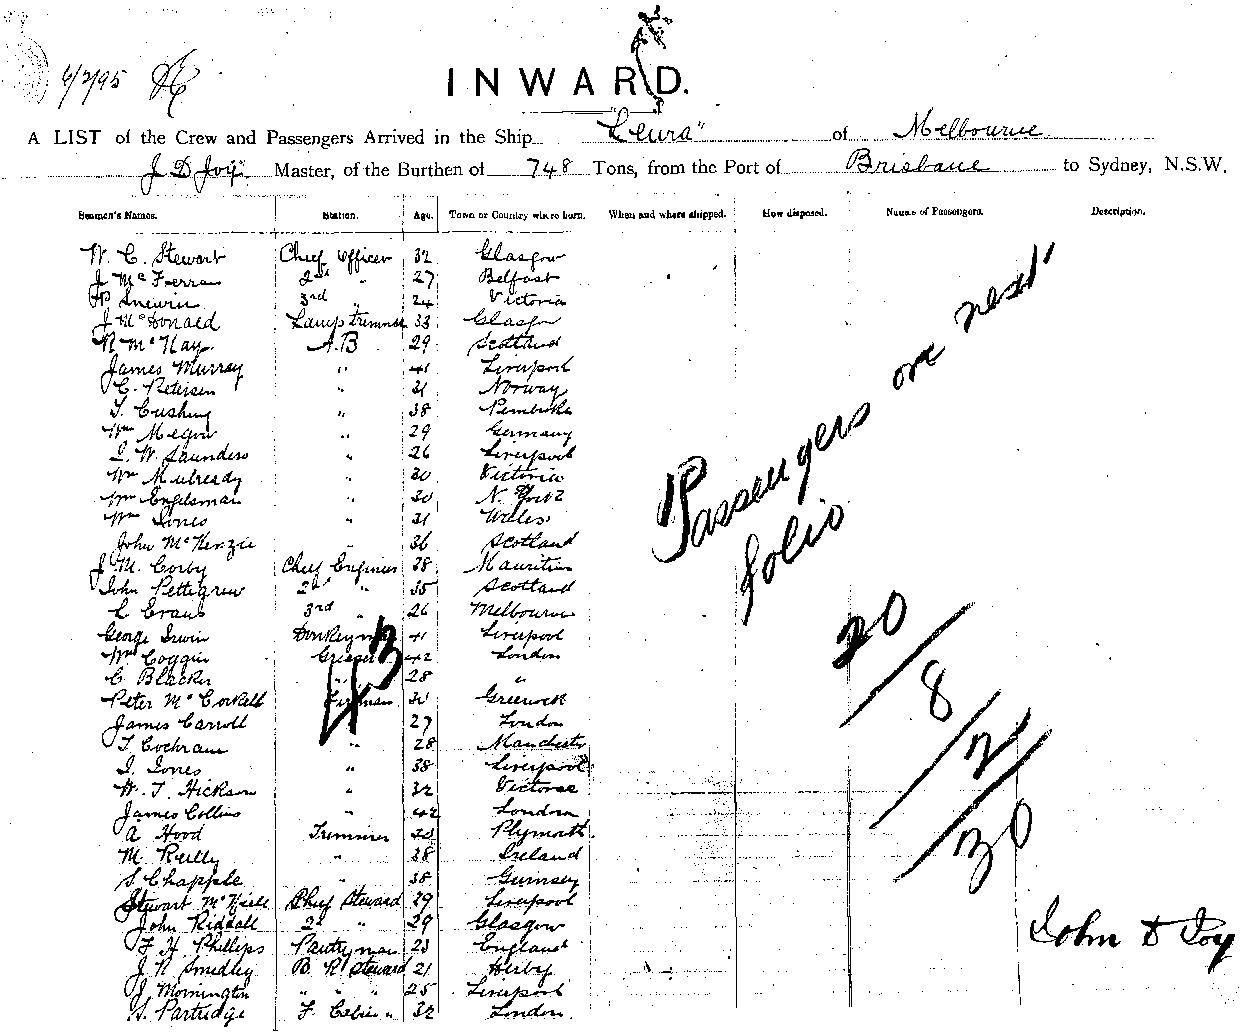 6/2/95
INWARD.
A LIST of the Crew and Passengers Arrived in the Ship "Leura" of Melbourne
J D Joy Master, of the Burthen of 748 Tons, from the Port of Brisbane to Sydney, N.S.W.
Seamen's Names. Station. Age. Town or Country where born. When and where shipped. How disposed. Names of Passengers. Description.
W. C. Stewart Chief Officer 32 Glasgow
J McFerran 2nd " 27 Belfast
Snewin 3rd " 24 Victoria
J McDonald Lamp trimmer 33 Glasgow
McKay A.B 29 Scotland
James Murray " 41 Liverpool
C. Petersen " 31 Norway
T. Cushing " 38 Pembroke
Wm Megow " 29 Germany
J. W. Saunders " 26 Liverpool
Wm Mulready " 30 Victoria
Wm Engelsman " 30 N.
Wm Jones " 31 Wales
John McKenzie " 36 Scotland
J. M. Corby Chief Engineer 38 Mauritius
John Pettegrew 2nd " 35 Scotland
L Evans 3rd " 26 Melbourne
George Irwin Donkeyman 41 Liverpool
Wm Coggin Greaser 42 London
C. Blacker " 28 "
Peter McCorkell Fireman 30 Greenock
James Carroll " 27 London
T. Cochrane " 28 Manchester
J. Jones " 38 Liverpool
W. T. Hickson " 32 Victoria
James Collins " 42 London
A Hood Trimmer 23 Plymouth
M. Reilly " 38 Ireland
S Chapple " 38 Gurnsey
Stewart McNiell Chief Steward 29 Liverpool
John Riddall 2d " 29 Glasgow
F. H. Phillips Pantryman 23 England
J. N. Smedley B. R. Steward 21
J. Mornington " " " 25 Liverpool
S. Partridge F. Cabin " 32 London
43
Passengers on next
folio
20
8
2
30
John D Joy